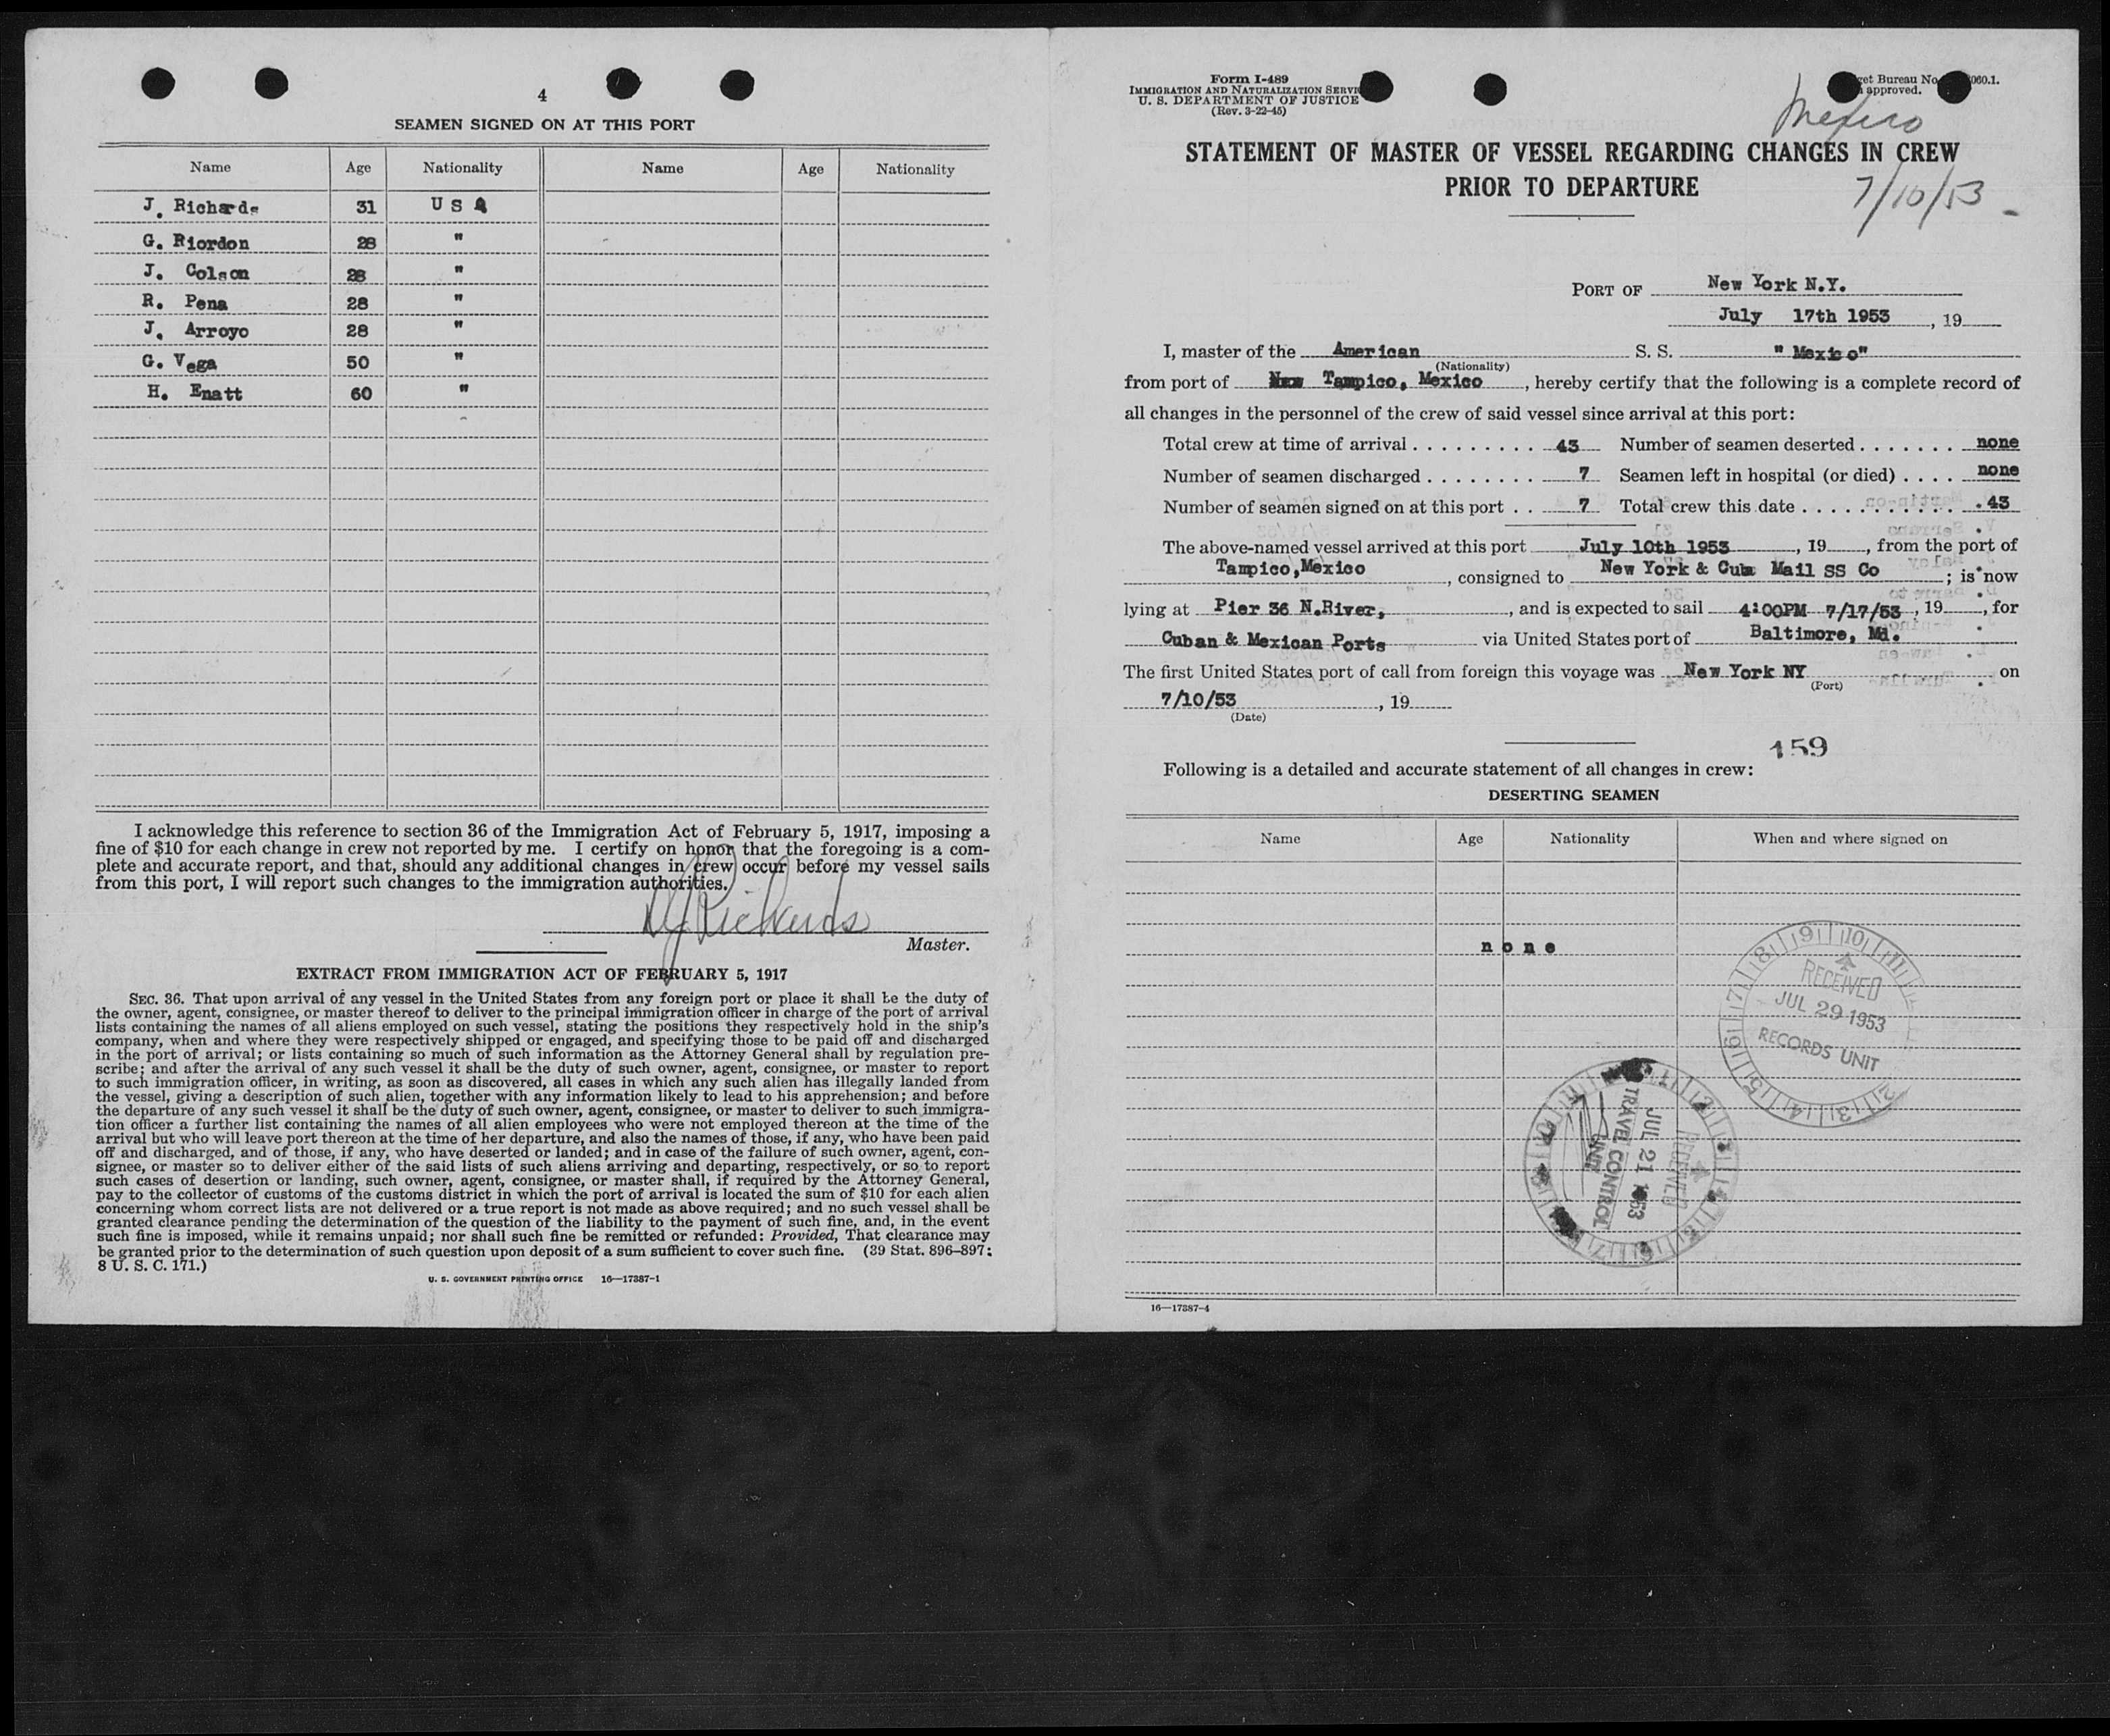 4
SEAMEN SIGNED ON AT THIS PORT
Name Age Nationality Name Age Nationality
J. Richards 31 U S A
G. Riordon 28 "
J. Colson 28 "
R. Pena 28 "
J. Arroyo 28 "
G. Vega 50 "
H. Enatt 60 "
I acknowledge this reference to section 36 of the Immigration Act of February 5, 1917, imposing a
fine of $10 for each change in crew not reported by me. I certify on honor that the foregoing is a com-
plete and accurate report, and that, should any additional changes in crew occur before my vessel sails
from this port, I will report such changes to the immigration authorities.
Richards
Master.
EXTRACT FROM IMMIGRATION ACT OF FEBRUARY 5, 1917
SEC. 36. That upon arrival of any vessel in the United States from any foreign port or place it shall be the duty of
the owner, agent, consignee, or master thereof to deliver to the principal immigration officer in charge of the port of arrival
lists containing the names of all aliens employed on such vessel, stating the positions they respectively hold in the ship's
company, when and where they were respectively shipped or engaged, and specifying those to be paid off and discharged
in the port of arrival; or lists containing so much of such information as the Attorney General shall by regulation pre-
scribe; and after the arrival of any such vessel it shall be the duty of such owner, agent, consignee, or master to report
to such immigration officer, in writing, as soon as discovered, all cases in which any such alien has illegally landed from
the vessel, giving a description of such alien, together with any information likely to lead to his apprehension; and before
the departure of any such vessel it shall be the duty of such owner, agent, consignee, or master to deliver to such immigra-
tion officer a further list containing the names of all alien employees who were not employed thereon at the time of the
arrival but who will leave port thereon at the time of her departure, and also the names of those, if any, who have been paid
off and discharged, and of those, if any, who have deserted or landed; and in case of the failure of such owner, agent, con-
signee, or master so to deliver either of the said lists of such aliens arriving and departing, respectively, or so to report
such cases of desertion or landing, such owner, agent, consignee, or master shall, if required by the Attorney General,
pay to the collector of customs of the customs district in which the port of arrival is located the sum of $10 for each alien
concerning whom correct lists are not delivered or a true report is not made as above required; and no such vessel shall be
granted clearance pending the determination of the question of the liability to the payment of such fine, and, in the event
such fine is imposed, while it remains unpaid; nor shall such fine be remitted or refunded: Provided, That clearance may
be granted prior to the determination of such question upon deposit of a sum sufficient to cover such fine. (39 Stat. 896-897;
8 U. S. C. 171.)
U. S. GOVERNMENT PRINTING OFFICE 16—17387-1
Form I-489
IMMIGRATION AND NATURALIZATION SERVI
U. S. DEPARTMENT OF JUSTICE
(Rev. 3-22-45)
get Bureau No. 060.1.
approved.
Mexico
STATEMENT OF MASTER OF VESSEL REGARDING CHANGES IN CREW
PRIOR TO DEPARTURE
7/10/53
PORT OF New York N.Y.
July 17th 1953, 19
I, master of the American S. S. "Mexico"
(Nationality)
from port of Tampico, Mexico, hereby certify that the following is a complete record of
all changes in the personnel of the crew of said vessel since arrival at this port:
Total crew at time of arrival . . . . . . . . . . 43 Number of seamen deserted . . . . . . . none
Number of seamen discharged . . . . . . . . 7 Seamen left in hospital (or died) . . . . none
Number of seamen signed on at this port . . 7 Total crew this date . . . . . . . . . . . . 43
The above-named vessel arrived at this port July 10th 1953, 19, from the port of
Tampico,Mexico, consigned to New York & Cuba Mail SS Co; is now
lying at Pier 36 N.River,, and is expected to sail 4:00PM 7/17/53, 19, for
Cuban & Mexican Ports via United States port of Baltimore, Md.
The first United States port of call from foreign this voyage was New York NY on
(Port)
7/10/53, 19
(Date)
159
Following is a detailed and accurate statement of all changes in crew:
DESERTING SEAMEN
Name Age Nationality When and where signed on
none
RECEIVED
JUL 29 1953
RECORDS UNIT
RECEIVED
JUL 21 1953
TRAVEL CONTROL
UNIT
16—17387-4